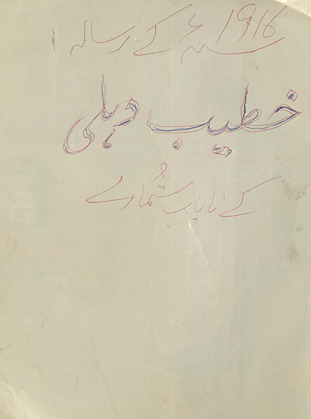 1916ء کے رسالہ
خطیب دہلی
کے نایاب شمارے